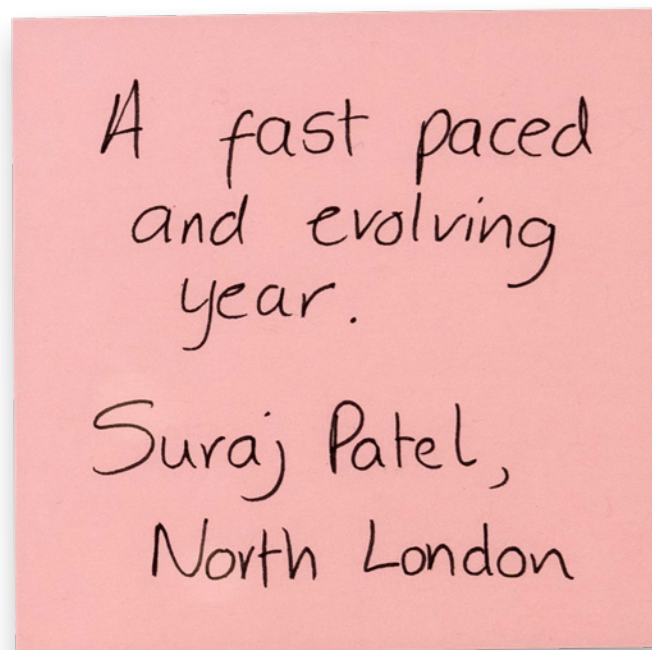 A fast paced
and evolving
year.
Suraj Patel,
North London